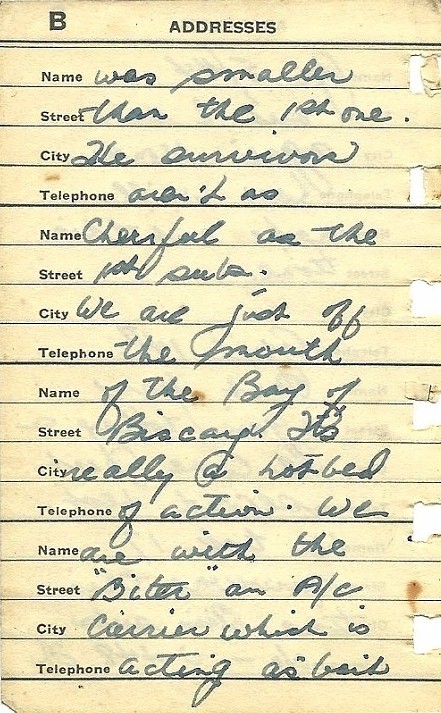 B ADDRESSES
Name was smaller
Street than the 1st one.
City The survivors
Telephone aren't as
Name Cheerful as the
Street 1st sub.
City We are just off
Telephone the mouth
Name of the Bay of
Street Biscay. It's
City really a hotbed
Telephone of action. We
Name are with the
Street "Biter" an A/c
City Carrier which is
Telephone acting as bait